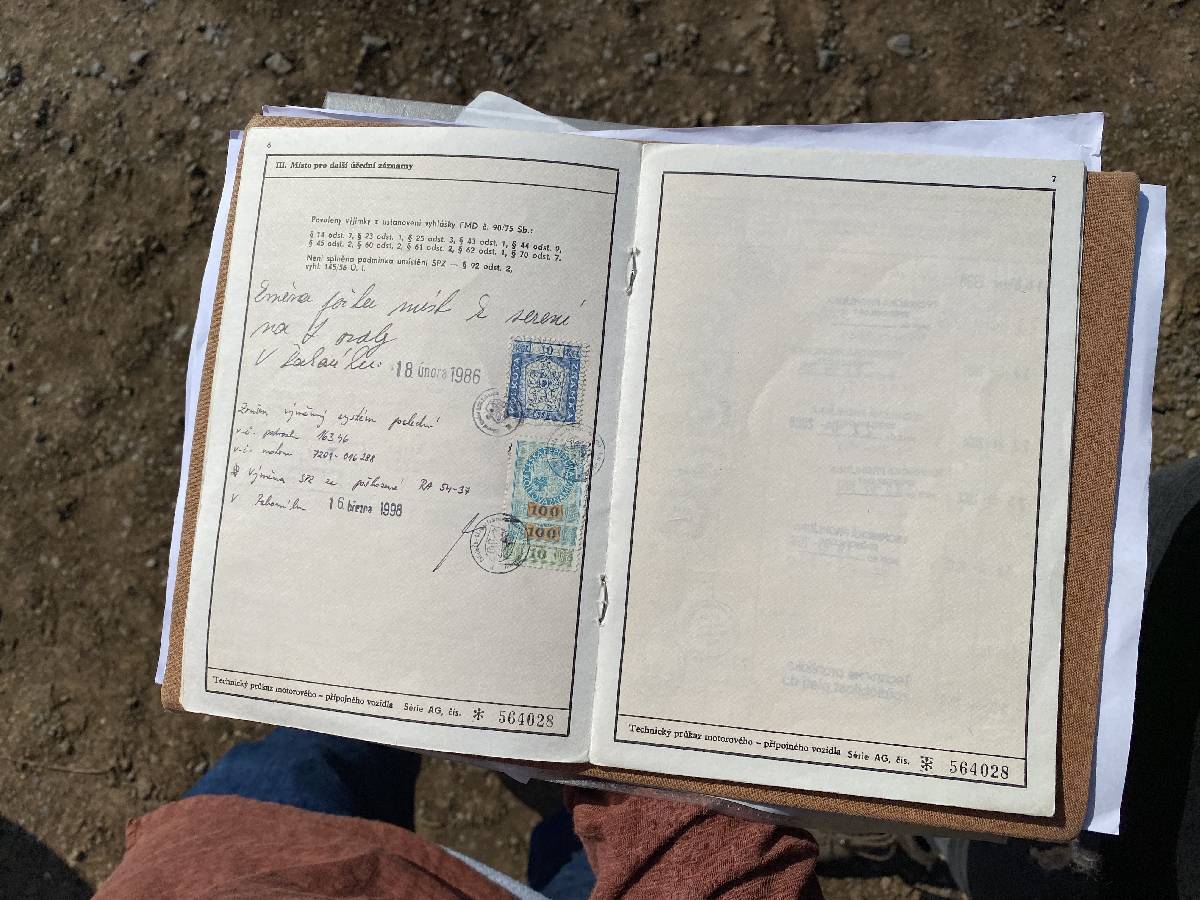 6
III. Místo pro další úřední záznamy
Povoleny výjimky z ustanovení vyhlášky FMD č. 90/75 Sb.:
§ 14 odst. 7, § 23 odst. 1, § 25 odst. 3, § 43 odst. 1, § 44 odst. 9,
§ 45 odst. 2, § 60 odst. 2, § 61 odst. 2, § 62 odst. 1, § 70 odst. 7.
Není splněna podmínka umístění SPZ — § 92 odst. 2,
vyhl. 145/56 Ú. l.
Změna počtu míst k sezení
na
V
18. února 1986
10 Kčs
KOLKOVÁ ZNÁMKA
výměnný systém
v.č.
16346
v.č. motoru 7201-016288
Výměna SPZ za poškozené RA 54-37
V 16. března 1998
100
100
10
Technický průkaz motorového – přípojného vozidla Série AG, čís. ✻ 564028
7
Technický průkaz motorového – přípojného vozidla Série AG, čís. ✻ 564028